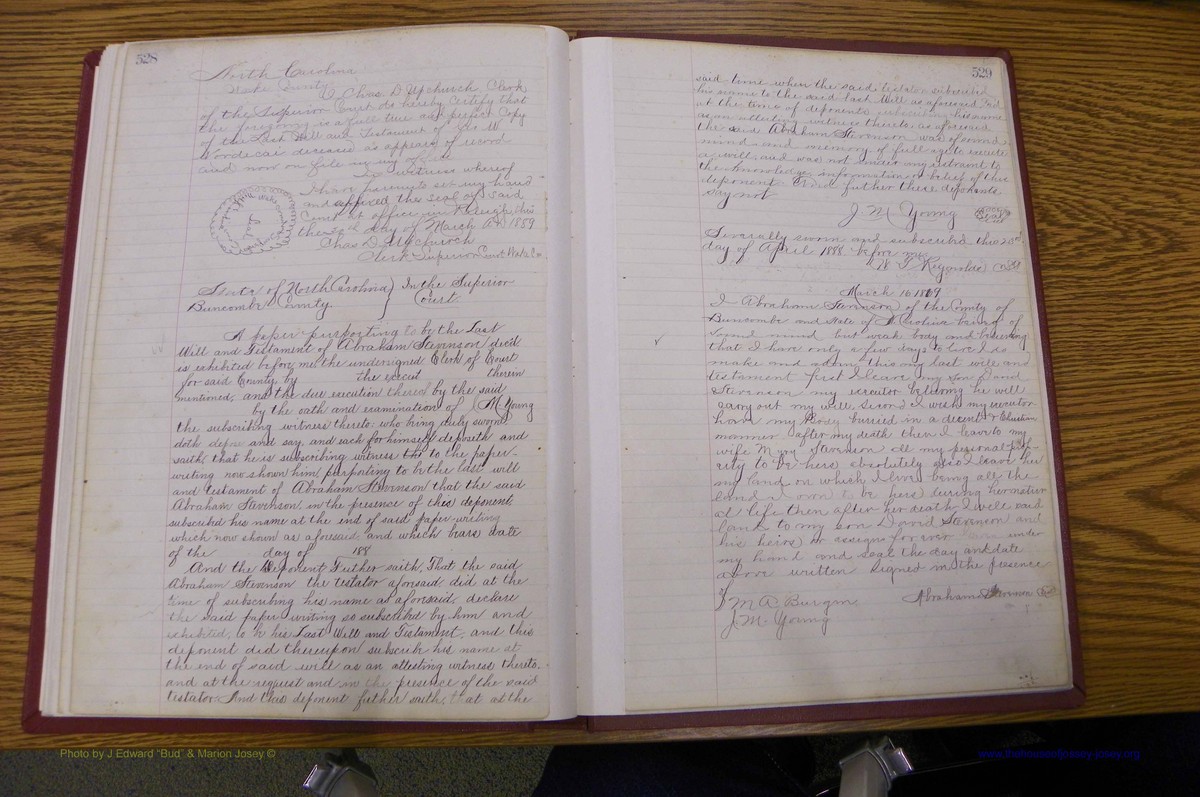 528
North Carolina
Wake County
I, Chas. D. Upchurch, Clerk
of the Superior Court do hereby certify that
the foregoing is a full true and perfect Copy
of the Last Will and Testament of Geo W
Mordecai deceased as appears of record
and now on file in my office
In witness whereof
I have hereunto set my hand
and affixed the seal of said
Court at office in Raleigh, this
the day of March AD 1889
Chas D. Upchurch
Clerk Superior Court Wake Co.
State of North Carolina } In the Superior
Buncombe County } Court.
A paper purporting to be the Last
Will and Testament of Abraham Stevenson dec'd
is exhibited before me the undersigned Clerk of Court
for said County, by the execut therein
mentioned, and the due execution thereof by the said
by the oath and examination of J M. Young
the subscribing witness thereto: who being duly sworn
doth depose and say, and each for himself deposeth and
saith, that he is subscribing witness the to the paper-
writing now shown him purporting to be the last will
and testament of Abraham Stevenson that the said
Abraham Stevenson, in the presence of this deponent,
subscribed his name at the end of said paper-writing
which now shown as aforesaid, and which bears date
of the day of 188
And the deponent Futher saith, That the said
Abraham Stevenson the testator aforesaid did at the
time of subscribing his name as aforesaid, declare
the said paper writing so subscribed by him and
exhibited, to be his Last Will and Testament, and this
deponent did thereupon subscribe his name at
the end of said will as an attesting witness thereto-
and at the request and in the presence of the said
testator. And this deponent futher saith, that at the
529
said time when the said testator subscribed
his name to the said last Will as aforesaid and
at the time of deponents subscribing his name
as an attesting witness thereto as aforesaid
the said Abraham Stevenson was of sound
mind and memory of full age to execute
a will and was not under any restraint to
the knowledge information or belief of this
deponent. And further these deponents
say not
J. M Young
Severally sworn and subscribed this 25th
day of April 1888 before me
W. T. Reynolds
March 16 1869
I Abraham Stevenson of the County of
Buncombe and State of N Carolina being of
Sound mind but weak body and believing
that I have only a few days to live I do
make and ordain this my last will and
testament first I leave my son David
Stevenson my executor believing he will
carry out my will. Second I wish my executor
have my Body burried in a decent & Christian
manner after my death then I leave to my
wife Mary Stevenson all my personal prop-
erty to be hers absolutely also I leave her
my land on which I live being all the
land I own to be hers during her natur
al life then after her death I will said
land to my son David Stevenson and
his heirs or assigns forever under
my hand and seal the day and date
above written signed in the presence
of
M A. Burgin Abraham Stevenson
J. M. Young
Photo by J Edward "Bud" & Marion Josey ©
www.thehouseofjossey-josey.org